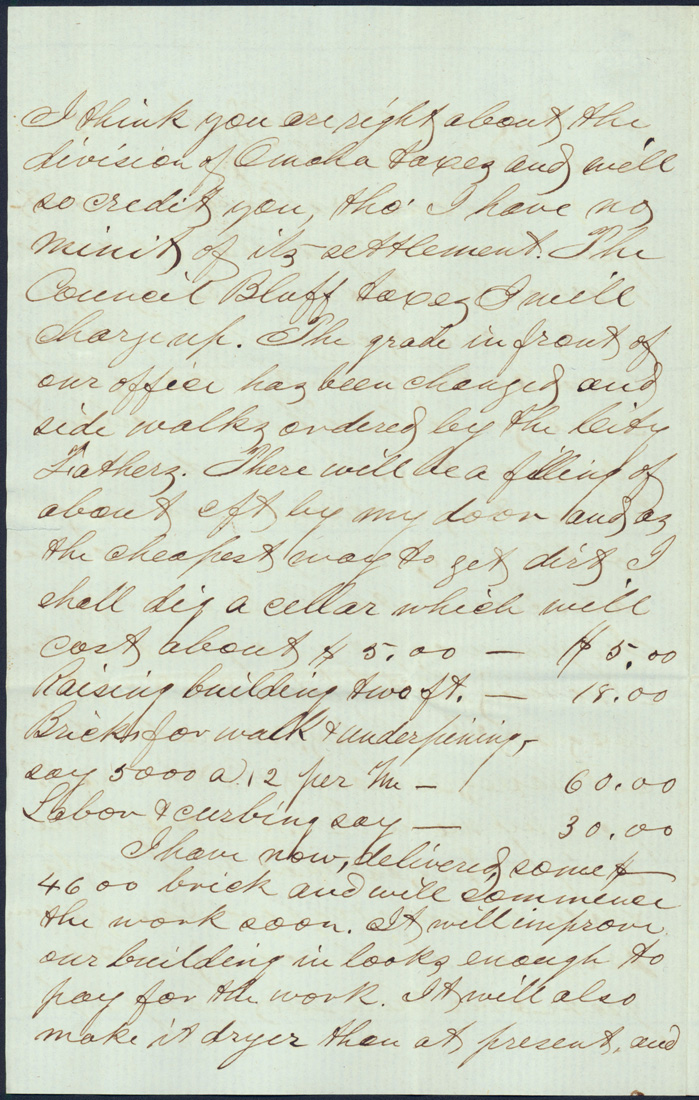 I think you are right about the
division of Omaha taxes and will
so credit you, tho' I have no
minit of its settlement. The
Council Bluff taxes I will
charge up. The grade in front of
our office has been changed and
side walks ordered by the City
Fathers. There will be a filling of
about 2ft by my door and as
the cheapest way to get dirt I
shall dig a cellar which will
cost about $5.00 — $5.00
Raising building two ft. — 18.00
Bricks for walk & underpining,
say 5000 a 12 per M — 60.00
Labor & curbing say — 30.00
I have now, delivered some
4600 brick and will commence
the work soon. It will improve
our building in looks enough to
pay for the work. It will also
make it dryer than at present, and